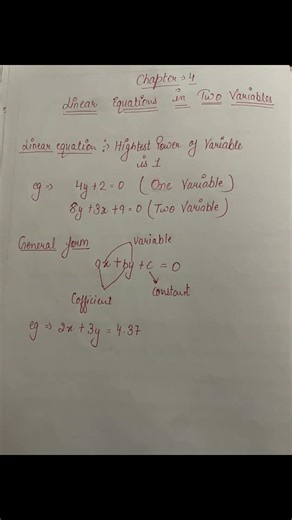 Chapter → 4
Linear Equations in Two Variables
Linear equation :→ Highest Power of Variable
is 1
eg ⇒ 4y + 2 = 0 ( One Variable )
8y + 3x + 9 = 0 ( Two Variable )
General form
Variable
ax + by + c = 0
Cofficient
Constant
eg ⇒ 2x + 3y = 4.37